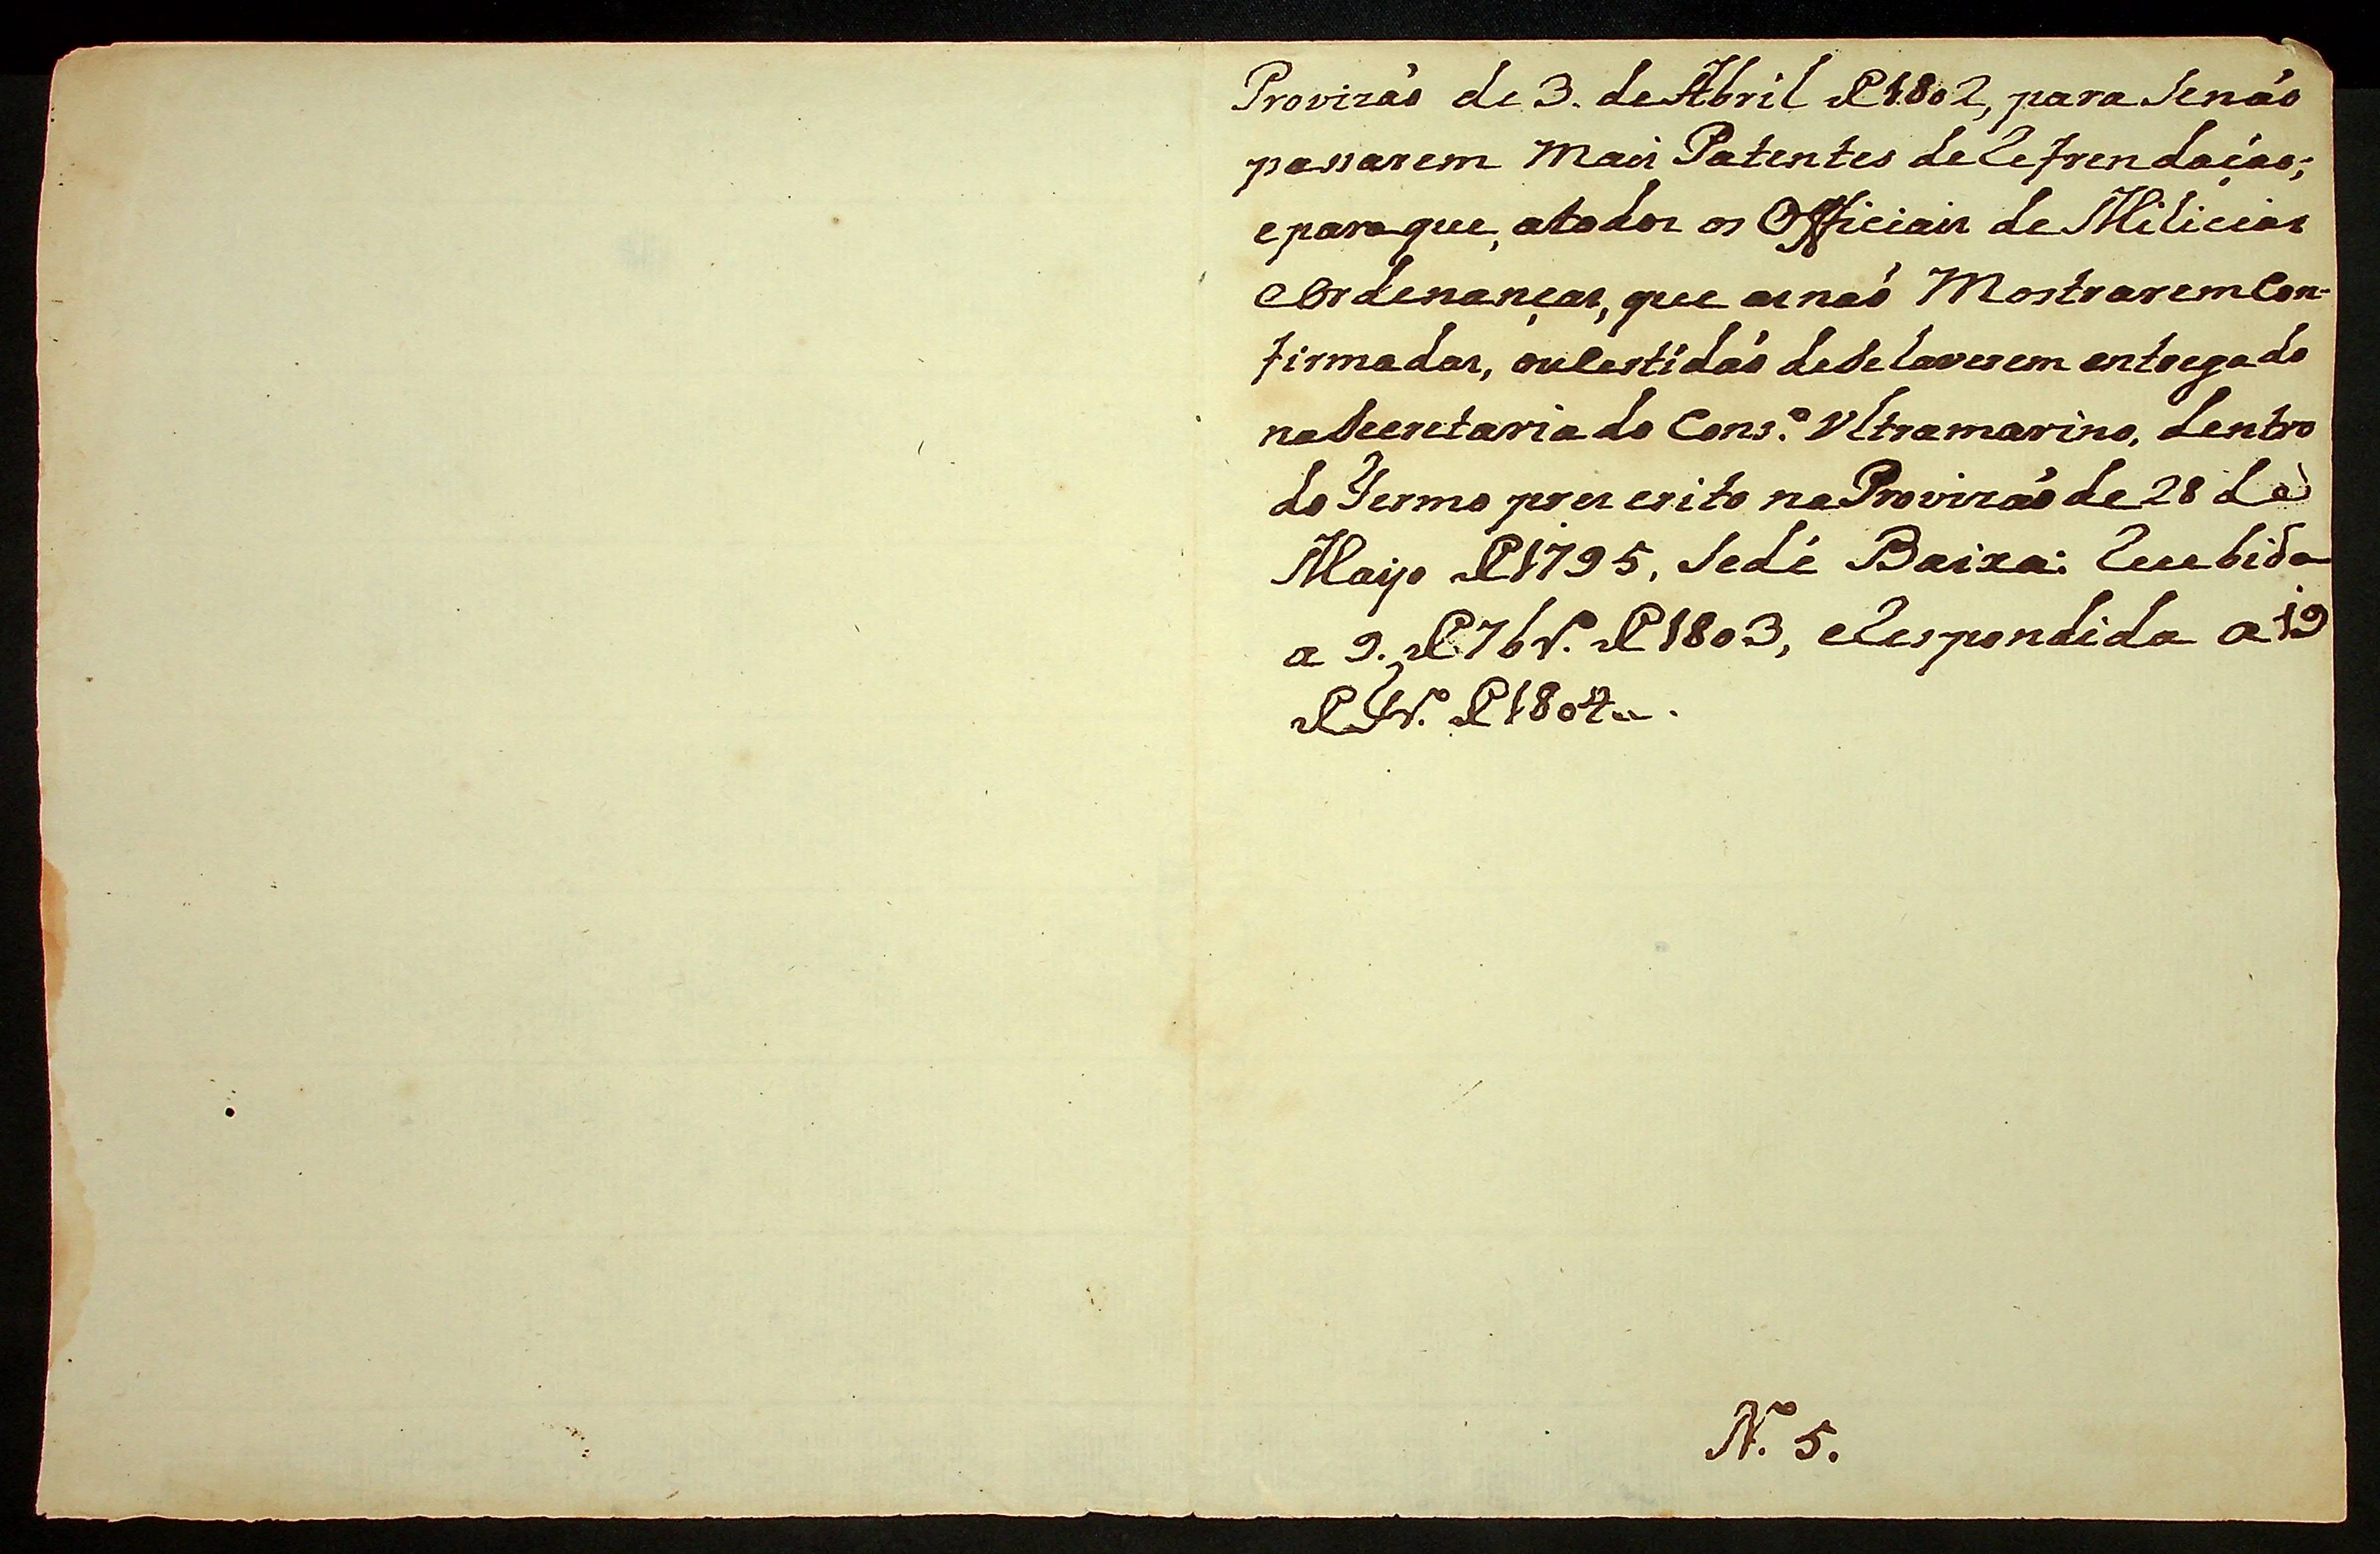 Provizaõ de 3. de Abril de 1802, para senaõ
passarem mais Patentes de Refrendaçao;
e para que, a todos os Officiais de Milicias
e Ordenanças, que as naõ Mostrarem Con-
firmadas, ou Certidaõ de se laverem entregado
na Secretaria do Cons.º Vltramarino, dentro
do Termo prescrito na Provizaõ de 28 de
Mayo de 1795, se dé Baixa: Recebida
a 9. de 7br.º de 1803, e Respondida a 19
de 1804
N. 5.